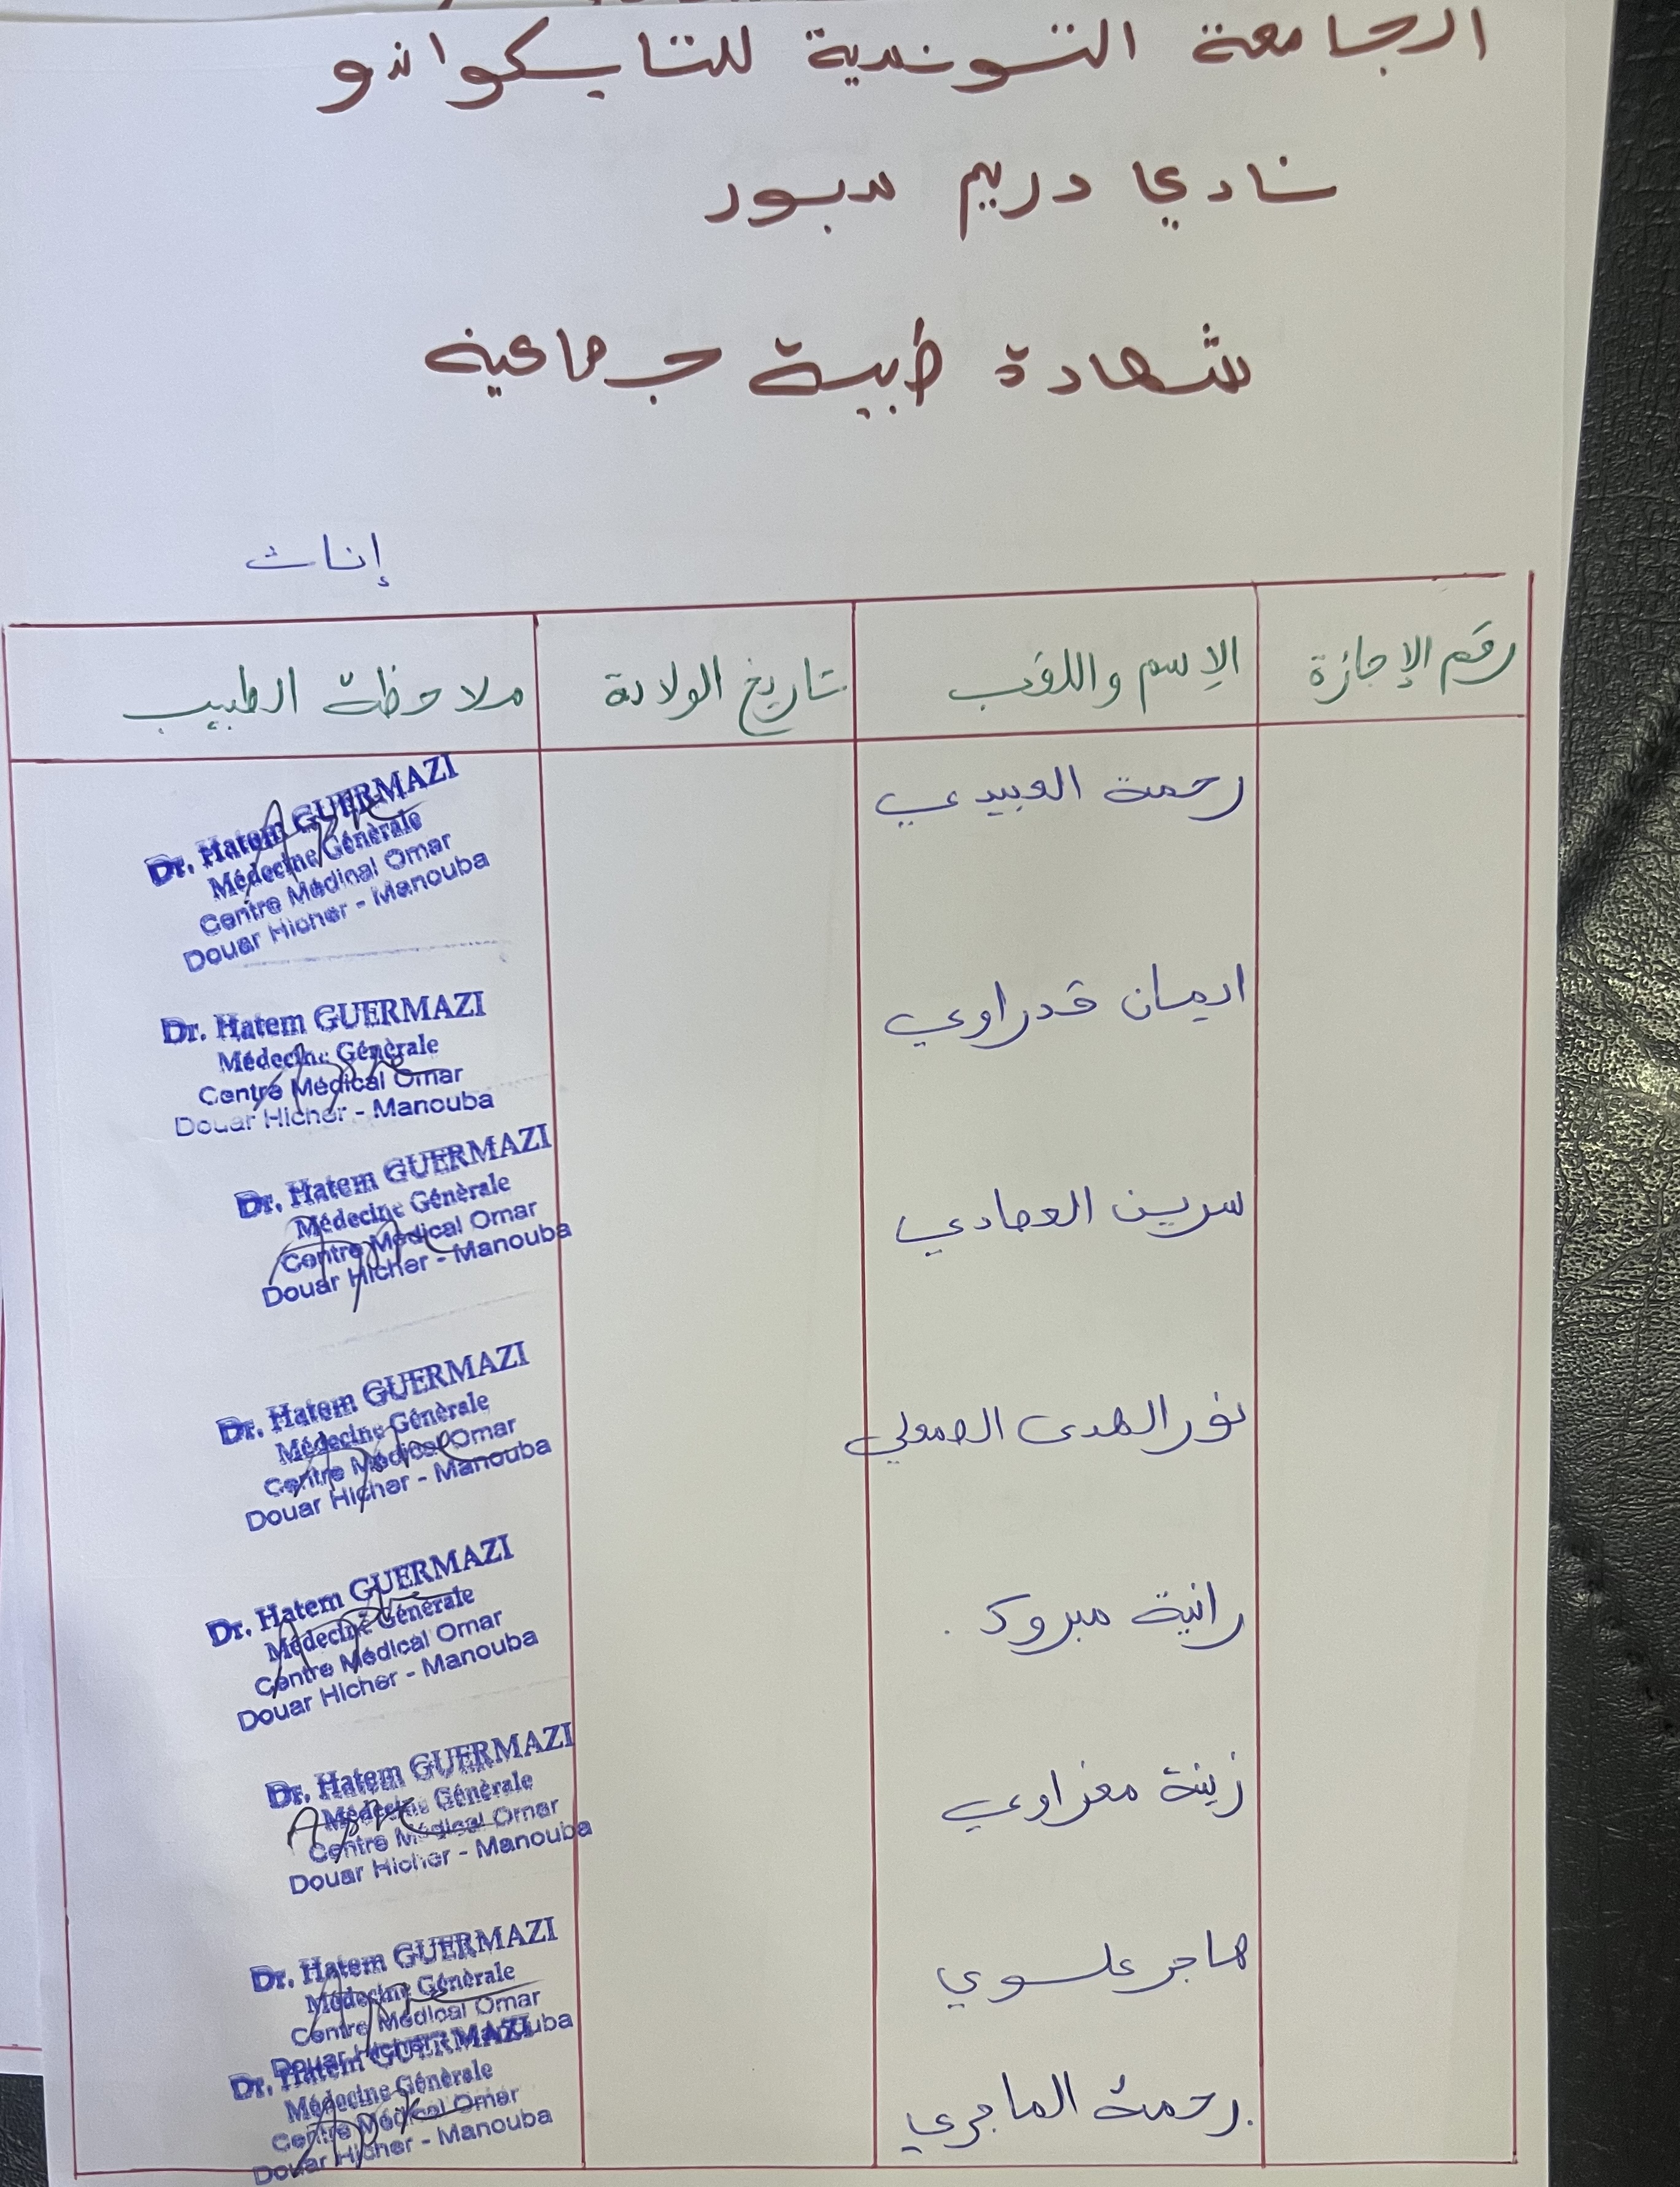 الجامعة التونسية للتايكواندو
نادي دريم سبور
شهادة طبية جماعية
إناث
رقم الإجازة
الإسم واللقب
تاريخ الولادة
ملاحظة الطبيب
رحمة العبيدي
Dr. Hatem GUERMAZI
Médecine Générale
Centre Médical Omar
Douar Hicher - Manouba
ايمان قدراوي
Dr. Hatem GUERMAZI
Médecine Générale
Centre Médical Omar
Douar Hicher - Manouba
سرين العمادي
Dr. Hatem GUERMAZI
Médecine Générale
Centre Médical Omar
Douar Hicher - Manouba
نور الهدى
Dr. Hatem GUERMAZI
Médecine Générale
Centre Médical Omar
Douar Hicher - Manouba
رانية مبروك
Dr. Hatem GUERMAZI
Médecine Générale
Centre Médical Omar
Douar Hicher - Manouba
زينة مغراوي
Dr. Hatem GUERMAZI
Médecine Générale
Centre Médical Omar
Douar Hicher - Manouba
هاجر علسوي
Dr. Hatem GUERMAZI
Médecine Générale
Centre Médical Omar
Douar Hicher - Manouba
رحمة الماجري
Dr. Hatem GUERMAZI
Médecine Générale
Centre Médical Omar
Douar Hicher - Manouba